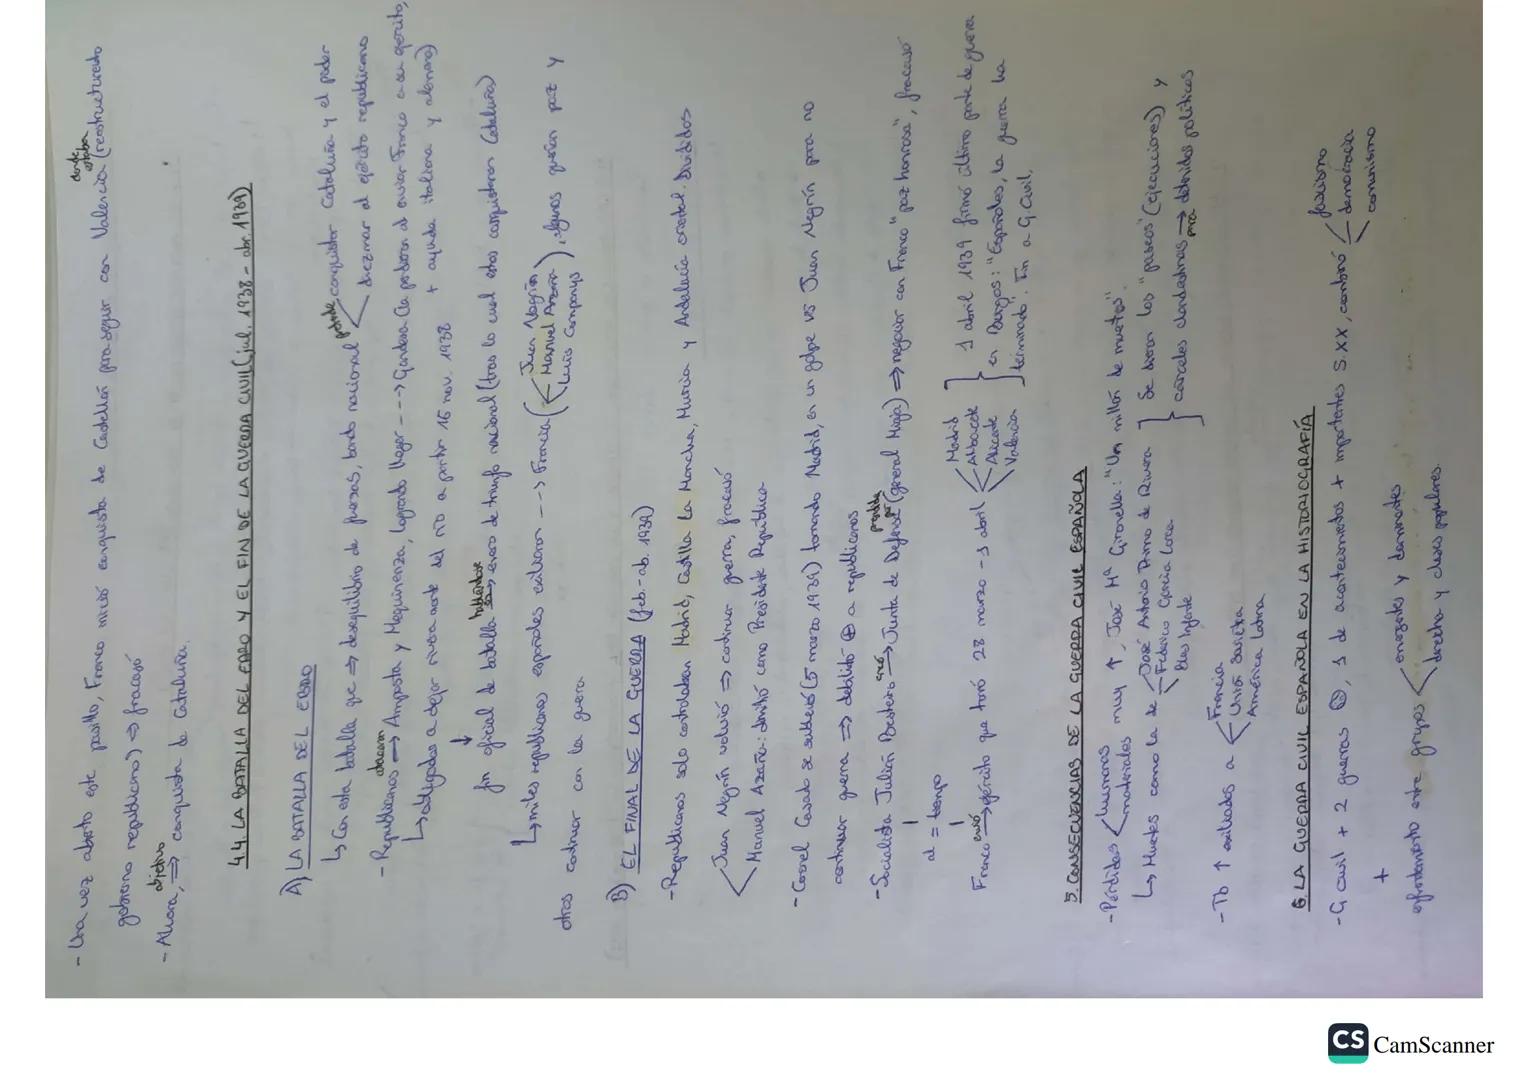 donde estaba
- Una vez abierto este pasillo, Franco inició conquista de Castellón para seguir con Valencia (reestructurado
gobierno republicano) ⇒ fracasó
- Ahora, objetivo ⇒ conquista de Cataluña.
4.4. LA BATALLA DEL EBRO Y EL FIN DE LA GUERRA CIVIL (jul. 1938 - abr 1939)
A) LA BATALLA DEL EBRO
↳ Con esta batalla que ⇒ desequilibrio de fuerzas, bando nacional pretende < conquistar Cataluña y el poder
diezmar al ejército republicano
- Republicanos atacaron → Amposta y Mequinenza, logrando llegar ---> Gandesa (la perdieron al enviar Franco a su ejército,
↳ obligados a dejar rivera norte del río a partir 16 nov. 1938 + ayuda italiana y alemana)
↓
fin oficial de batalla → enero de triunfo nacional (tras lo cual estos conquistaron Cataluña)
↳ miles republicanos españoles exiliaron --> Francia ( < Juan Negrín
Manuel Azaña
Luís Companys ), algunos querían paz y
otros continuar con la guerra
B) EL FINAL DE LA GUERRA (feb - ab. 1939)
- Republicanos solo controlaban Madrid, Castilla La Mancha, Murcia y Andalucía oriental. Divididos
< Juan Negrín volvió ⇒ continuar guerra, fracasó
Manuel Azaña: dimitió como Presidente República
- Coronel Casado se sublevó (5 marzo 1939) tomando Madrid, en un golpe vs Juan Negrín para no
continuar guerra ⇒ debilitó ⊕ a republicanos
- Socialista Julián Besteiro creó → Junta de Defensa (general Miaja) ⇒ negociar con Franco "paz honrosa", fracasó
al = tiempo
Franco envió → ejército que tomó 28 marzo - 1 abril < Madrid
Albacete
Alicante
Valencia } 1 abril 1939 firmó último parte de guerra
en Burgos: "Españoles, la guerra ha
terminado". Fin a G. Civil.
5. CONSECUENCIAS DE LA GUERRA CIVIL ESPAÑOLA
- Pérdidas < humanas
materiales muy ↑, José Mª Gironella: "Un millón de muertos".
↳ Muertes como la de < José Antonio Primo de Rivera
Federico García Lorca
Blas Infante } Se dieron los "paseos" (ejecuciones) y
cárceles clandestinas → para detenidos políticos
- Tb ↑ exiliados a < Francia
Unión Soviética
América Latina
6. LA GUERRA CIVIL ESPAÑOLA EN LA HISTORIOGRAFÍA
- G civil + 2 guerras, 1 de acontecimientos + importantes S.XX, cambió < fascismo
democracia
comunismo
+
enfrentamiento entre grupos < emergentes y dominantes
derecha y clases populares.
CS CamScanner